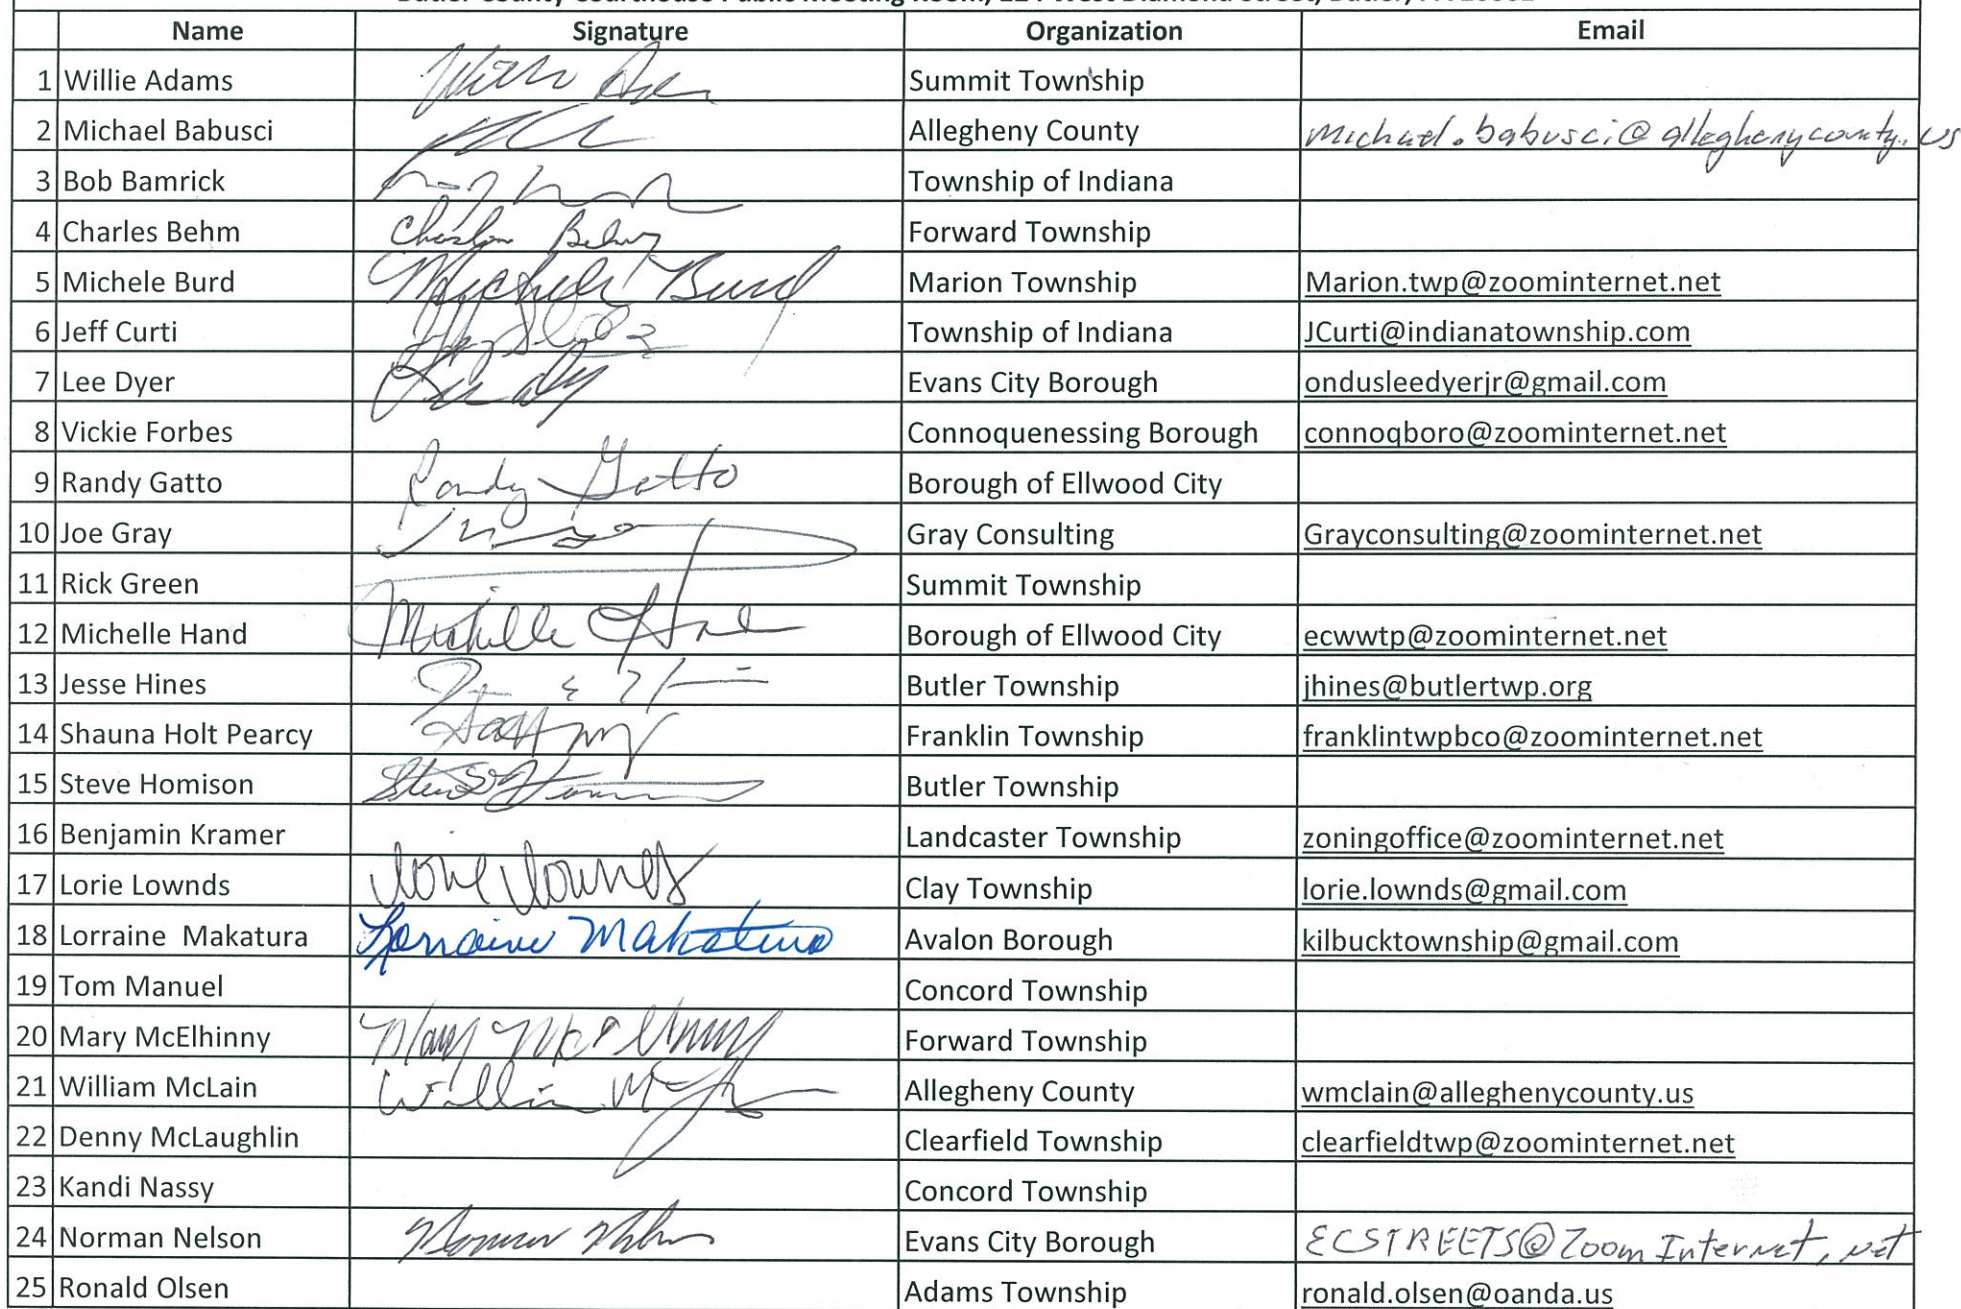 Name Signature Organization Email
1 Willie Adams Summit Township
2 Michael Babusci Allegheny County michael.babusci@alleghenycounty.us
3 Bob Bamrick Township of Indiana
4 Charles Behm Charles Behm Forward Township
5 Michele Burd Michele Burd Marion Township Marion.twp@zoominternet.net
6 Jeff Curti Township of Indiana JCurti@indianatownship.com
7 Lee Dyer Evans City Borough ondusleedyerjr@gmail.com
8 Vickie Forbes Connoquenessing Borough connoqboro@zoominternet.net
9 Randy Gatto Randy Gatto Borough of Ellwood City
10 Joe Gray Gray Consulting Grayconsulting@zoominternet.net
11 Rick Green Summit Township
12 Michelle Hand Michelle Hand Borough of Ellwood City ecwwtp@zoominternet.net
13 Jesse Hines Butler Township jhines@butlertwp.org
14 Shauna Holt Pearcy Franklin Township franklintwpbco@zoominternet.net
15 Steve Homison Butler Township
16 Benjamin Kramer Landcaster Township zoningoffice@zoominternet.net
17 Lorie Lownds Lorie Lownds Clay Township lorie.lownds@gmail.com
18 Lorraine Makatura Lorraine Makatura Avalon Borough kilbucktownship@gmail.com
19 Tom Manuel Concord Township
20 Mary McElhinny Mary McElhinny Forward Township
21 William McLain William McLain Allegheny County wmclain@alleghenycounty.us
22 Denny McLaughlin Clearfield Township clearfieldtwp@zoominternet.net
23 Kandi Nassy Concord Township
24 Norman Nelson Norman Nelson Evans City Borough ECSTREETS@ZoomInternet.net
25 Ronald Olsen Adams Township ronald.olsen@oanda.us